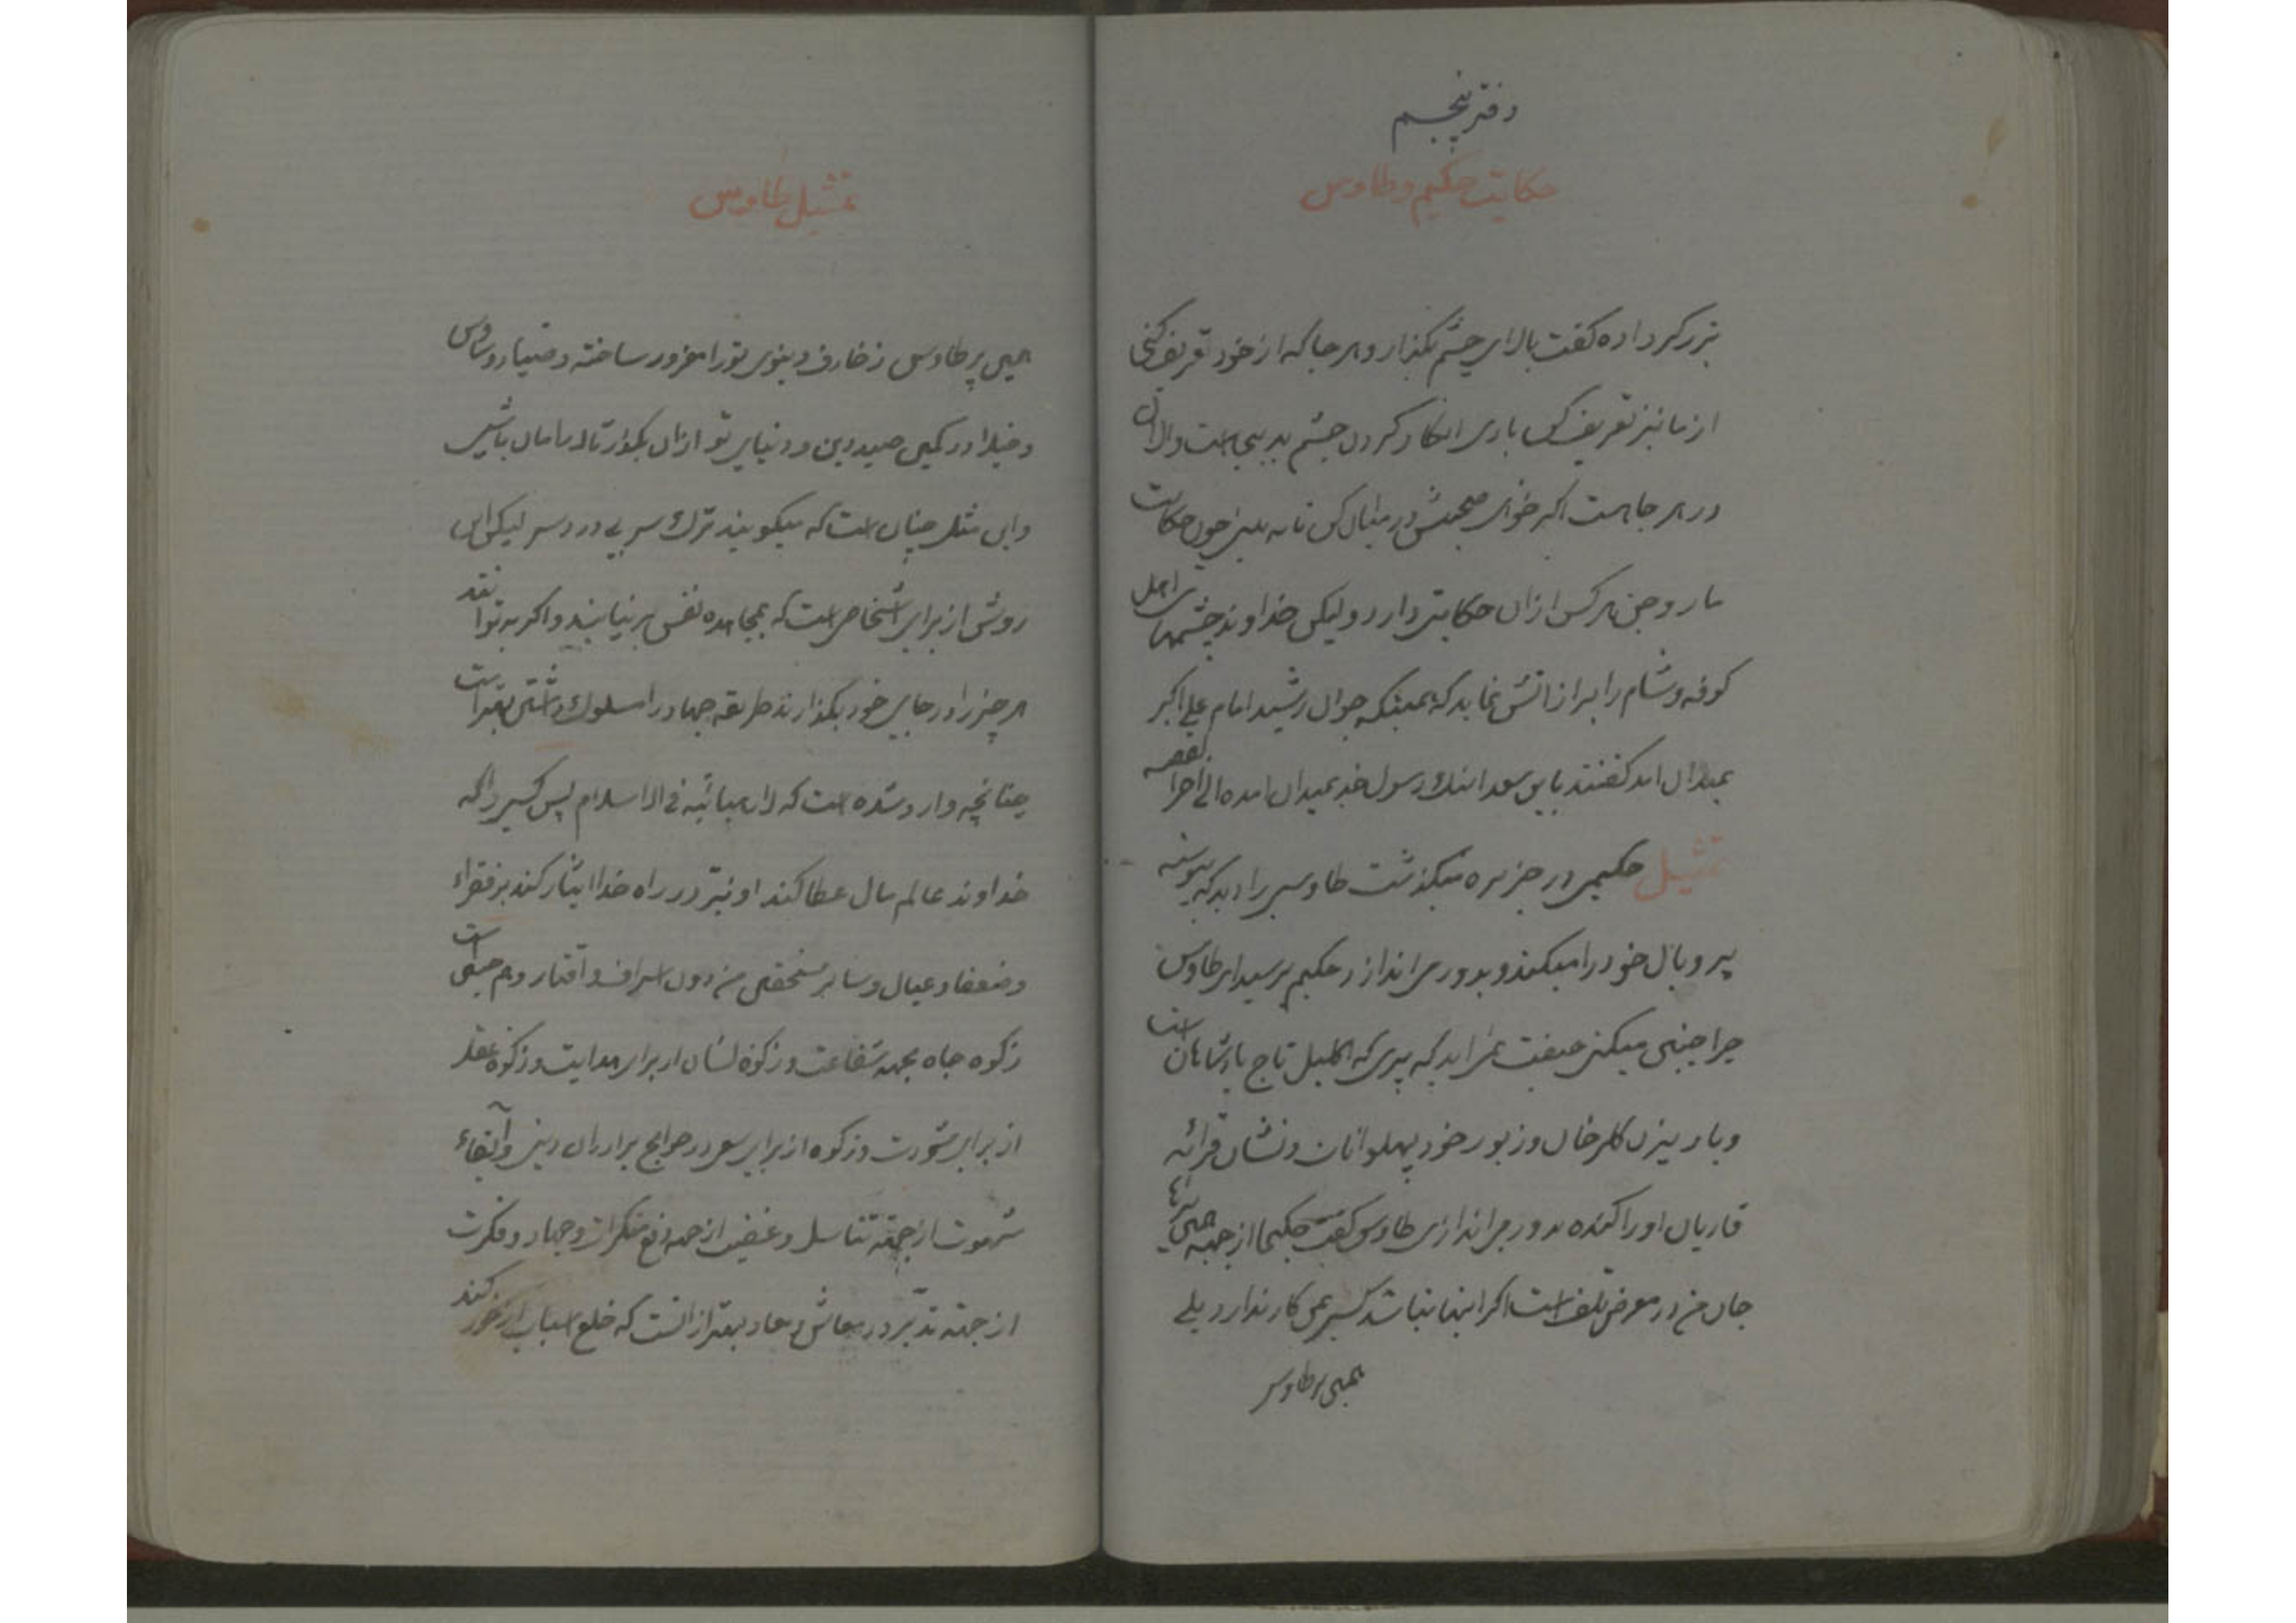 دفتر پنجم
حکایت حکیم و طاوس
بزرگر داده گفت بالای چشم بگذار و هر جا که از خود تعریف کنی
از ما نیز تعریف کن باری انکار کردن چشم بد بیجاست والان
در هر جا هست اگر خواهی صحبتش در میان کن تا به بینی چون حکایت
مار و جن هر کس ازان حکایتی دارد ولیکن خداوند چشمهای اهل
کوفه و شام را پر از اتش نماید که همینکه جوان رشید امام علی اکبر
بمیدان امد گفتند یابن سعد اینک رسول خدا بمیدان امده الی اخر القصه
تمثیل حکیمی در جزیره میگذشت طاوسی را دید که پیوسته
پر و بال خود را میکند و بدور می اندازد حکیم پرسید ای طاوس
چرا چنین میکنی حیفت نمی اید که پری که اکلیل تاج پادشاهان است
و باد بیزن گلرخان و زیور خود پهلوانان و نشان قرائه
قاریان او را کنده بدور می اندازی طاوس گفت حکیما از جهه همین پرها
جان من در معرض تلف است اگر اینها نباشد کسی بمن کار ندارد بلی
همین پر طاوس
تمثیل طاوس
همین پر طاوس زخارف دنیوی تو را مغرور ساخته و صیاد وسواس
و خیلا در کمین صید دین و دنیای تو ازان بگذر تا در امان باشی
و این مثل چنان است که میگویند ترک سر بی درد سر لیکن این
روش از برای اشخاص است که بمجاهده نفس بر نیایند و اگر به توانند
هر چیز را در جایی خود بگذارند طریقه جهاد را سلوک داشتن بهتر است
چنانچه وارد شده است که لا رهبانیه فی الاسلام پس کسی را که
خداوند عالم مال عطا کند او نیز در راه خدا ایثار کند بر فقراء
و ضعفا و عیال و سایر مستحقین من دون اسراف و اقتار و هم چنین است
زکوة جاه بجهه شفاعت و زکوة لسان از برای هدایت و زکوة عقل
از برای مشورت و زکوه از برای سعی در حوایج برادران دینی و ابقاء
شهوت از جهة تناسل و غضب از جهه دفع منکرات و جهاد و فکرت
از جهته تدبر در معاش و معاد بهتر از انست که خلع اسباب از خود کند